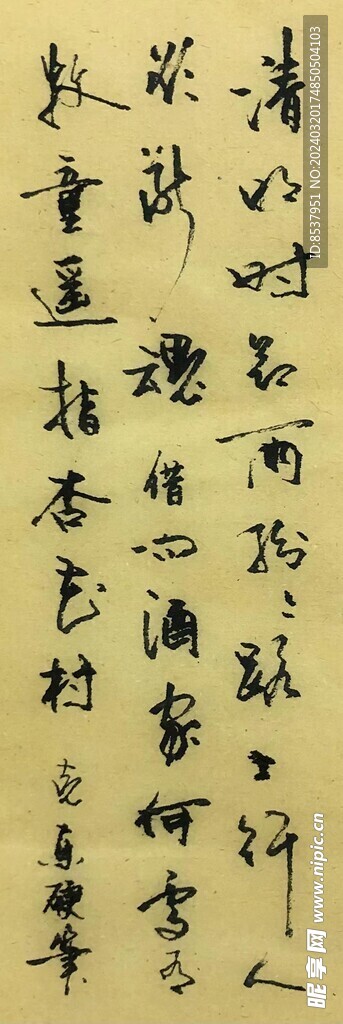 清明时节雨纷々路上行人
欲断魂借问酒家何处有
牧童遥指杏花村
克东硬筆
ID:8537951 NO:20240320174850504103
昵享网 www.nipic.cn